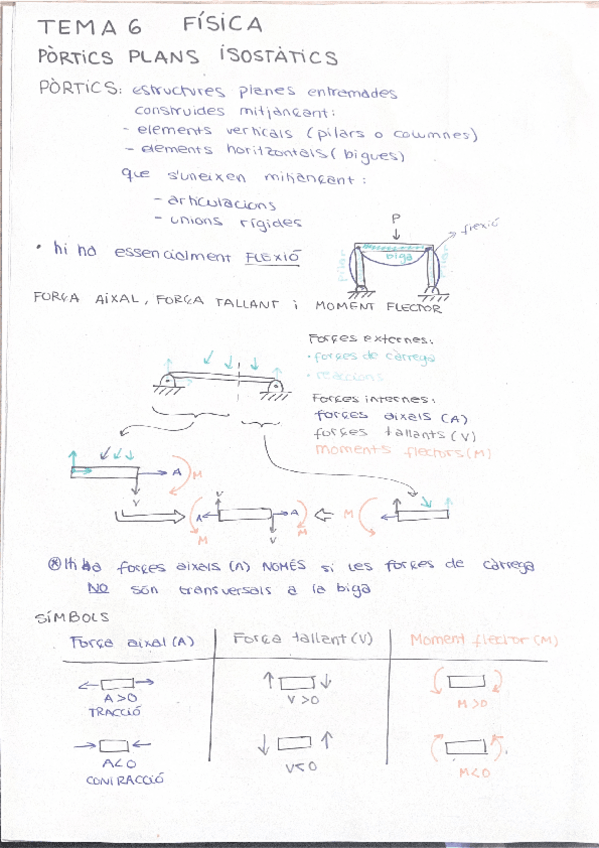 TEMA 6 FÍSICA
PÒRTICS PLANS ISOSTÀTICS
PÒRTICS: estructures planes entramades
construides mitjançant:
- elements verticals (pilars o columnes)
- elements horitzontals (bigues)
que s'uneixen mitjançant:
- articulacions
- unions rígides
• hi ha essencialment FLEXIÓ
P
flexió
biga
pilar
pilar
FORÇA AIXAL, FORÇA TALLANT i MOMENT FLECTOR
Forçes externes:
• forçes de càrrega
• reaccions
Forçes internes:
forçes aixals (A)
forçes tallants (V)
moments flectors (M)
A M
V
V
A A M
M V M
⊗ Hi ha forçes aixals (A) NOMÉS si les forçes de càrrega
NO són transversals a la biga
SÍMBOLS
Força aixal (A) Força tallant (V) Moment flector (M)
A>0 V>0 M>0
TRACCIÓ
A<0 V<0 M<0
CONTRACCIÓ